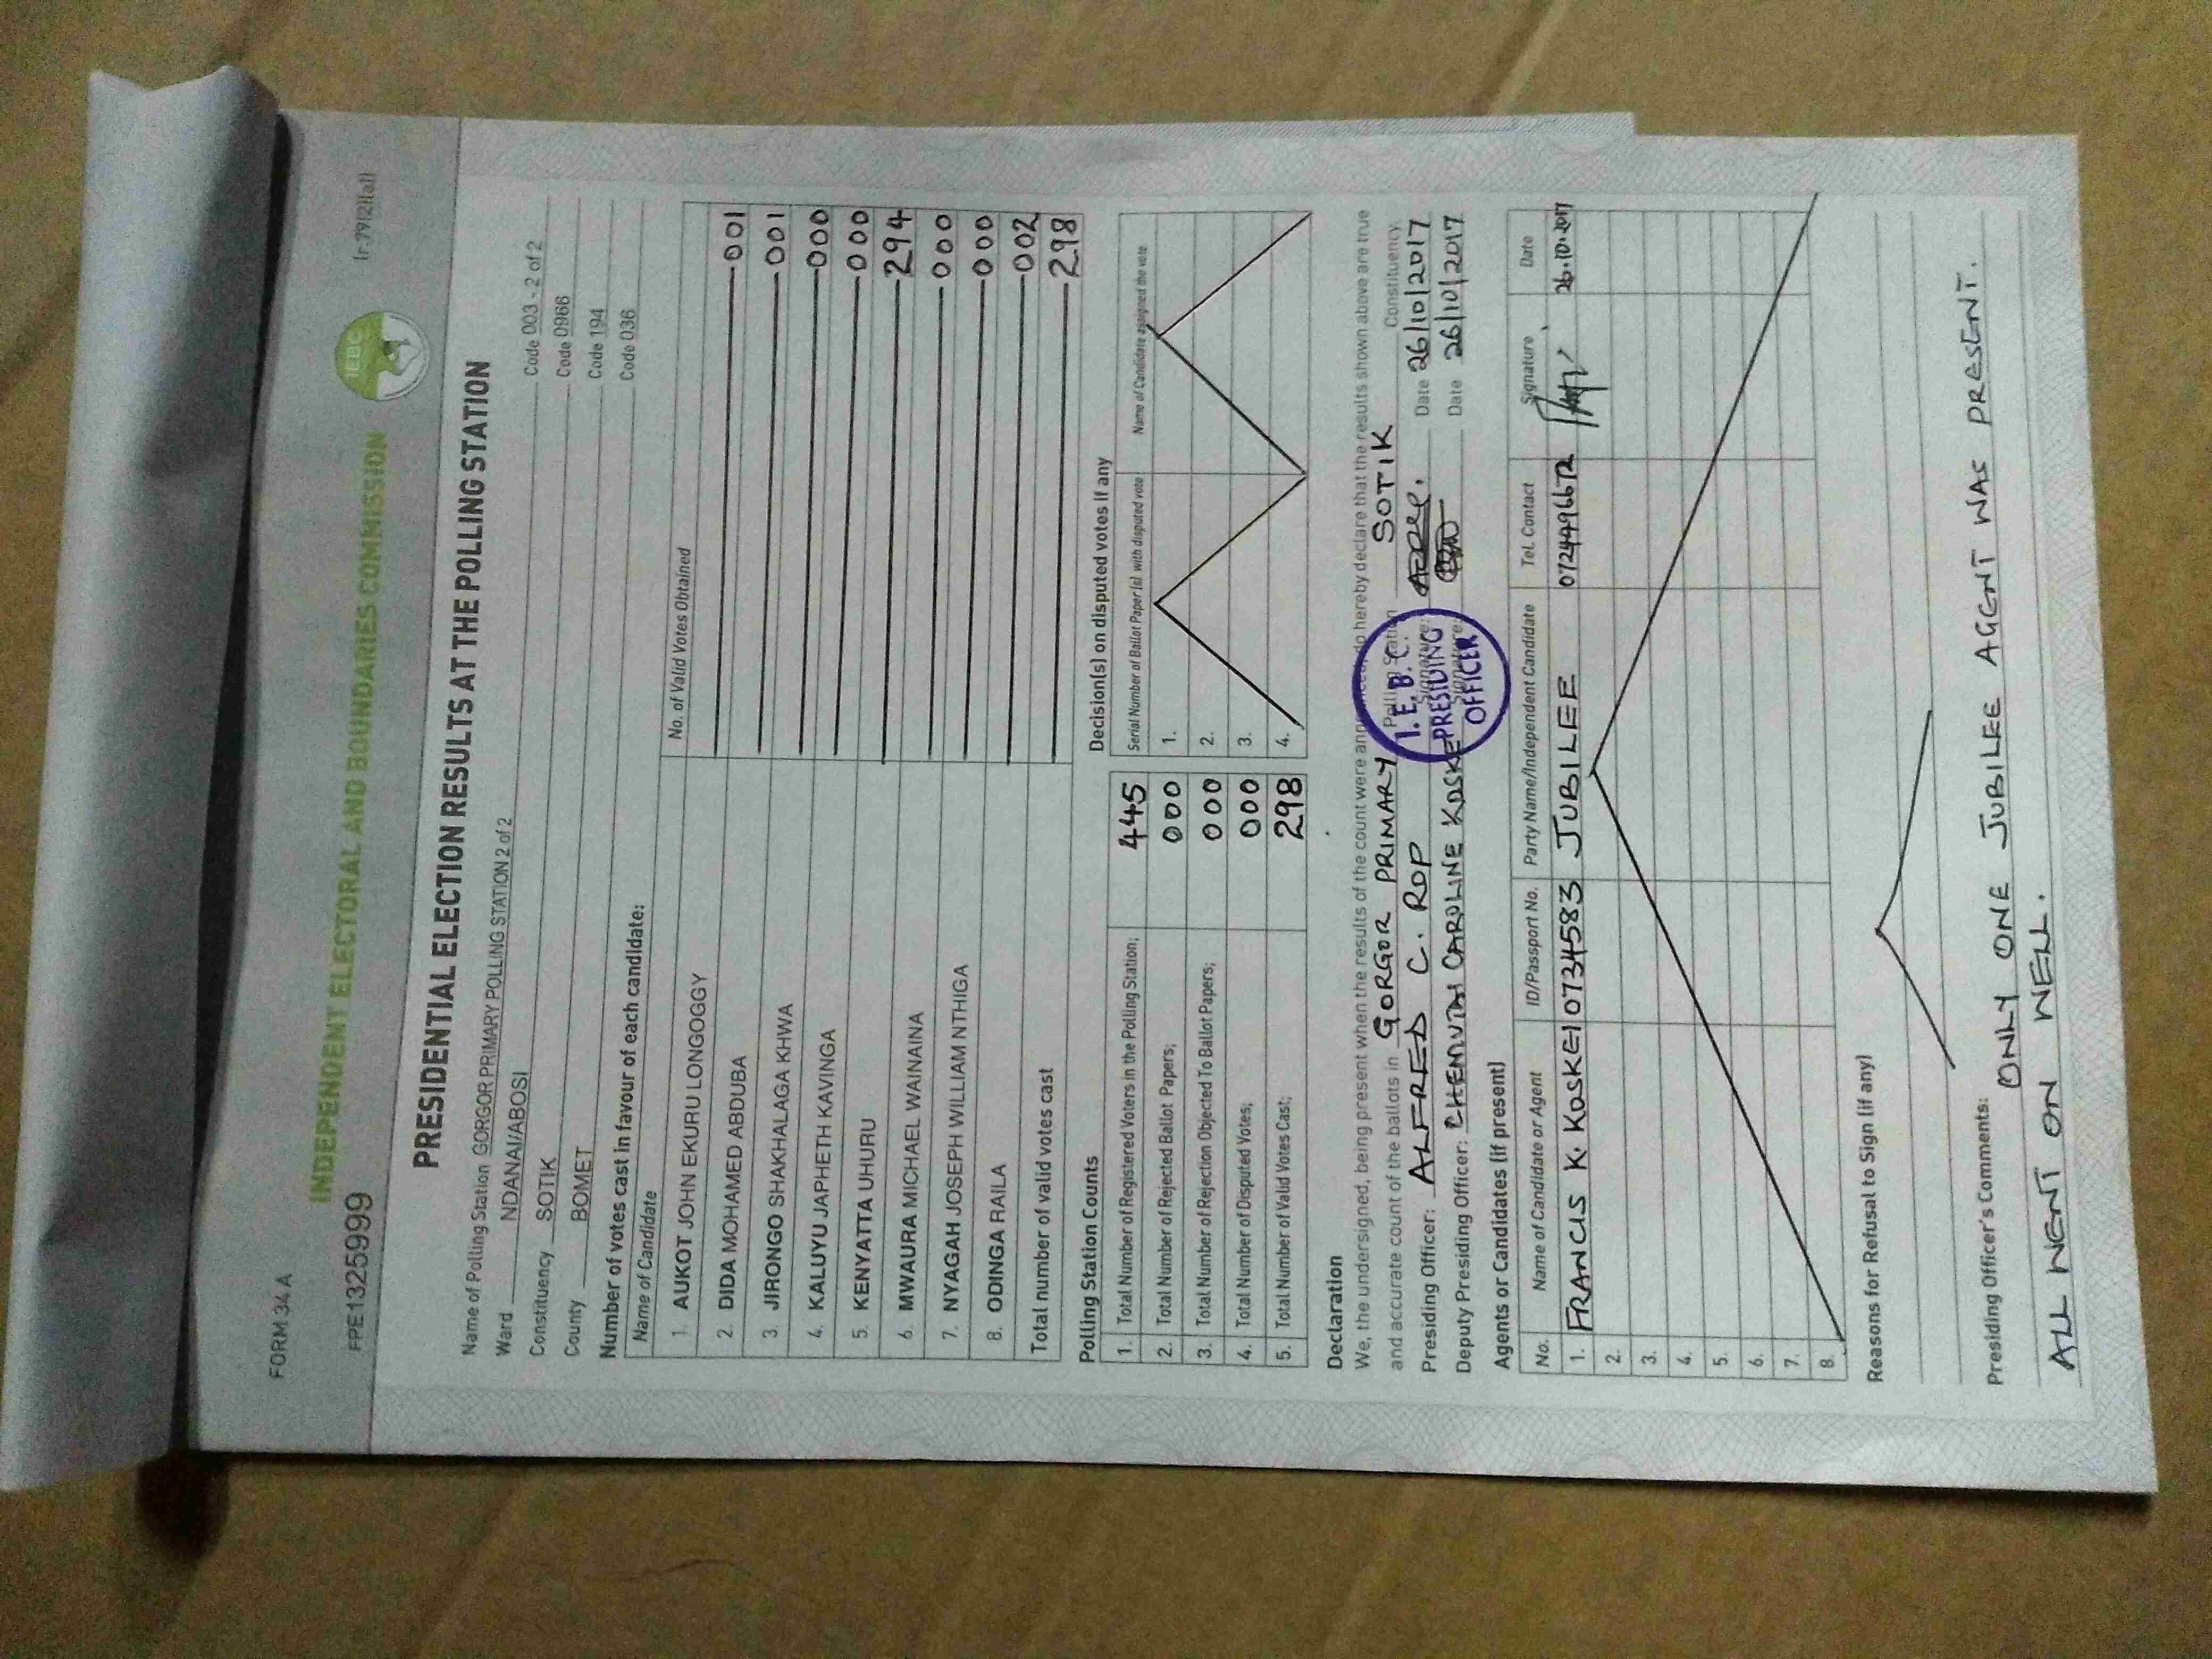 FORM 34 A
INDEPENDENT ELECTORAL AND BOUNDARIES COMMISSION
IEBC
(r.79(2)(a))
FPE1325999
PRESIDENTIAL ELECTION RESULTS AT THE POLLING STATION
Name of Polling Station GORGOR PRIMARY POLLING STATION 2 of 2 Code 003 - 2 of 2
Ward NDANAI/ABOSI Code 0966
Constituency SOTIK Code 194
County BOMET Code 036
Number of votes cast in favour of each candidate:
Name of Candidate No. of Valid Votes Obtained
1. AUKOT JOHN EKURU LONGOGGY 001
2. DIDA MOHAMED ABDUBA 001
3. JIRONGO SHAKHALAGA KHWA 000
4. KALUYU JAPHETH KAVINGA 000
5. KENYATTA UHURU 294
6. MWAURA MICHAEL WAINAINA 000
7. NYAGAH JOSEPH WILLIAM NTHIGA 000
8. ODINGA RAILA 002
Total number of valid votes cast 298
Polling Station Counts
1. Total Number of Registered Voters in the Polling Station; 445
2. Total Number of Rejected Ballot Papers; 000
3. Total Number of Rejection Objected To Ballot Papers; 000
4. Total Number of Disputed Votes; 000
5. Total Number of Valid Votes Cast; 298
Decision(s) on disputed votes if any
Serial Number of Ballot Paper(s) with disputed vote Name of Candidate assigned the vote
1.
2.
3.
4.
Declaration
We, the undersigned, being present when the results of the count were announced, do hereby declare that the results shown above are true
and accurate count of the ballots in GORGOR PRIMARY Polling Station SOTIK Constituency.
Presiding Officer: ALFRED C. ROP Signature: Date 26/10/2017
Deputy Presiding Officer: CHEMUTAI CAROLINE KOSKE Signature: Date 26/10/2017
I.E.B.C.
PRESIDING
OFFICER
Agents or Candidates (if present)
No. Name of Candidate or Agent ID/Passport No. Party Name/Independent Candidate Tel. Contact Signature Date
1. FRANCIS K. KOSKEI 07344583 JUBILEE 0724496672 26.10.2017
2.
3.
4.
5.
6.
7.
8.
Reasons for Refusal to Sign (if any)
Presiding Officer's Comments: ONLY ONE JUBILEE AGENT WAS PRESENT.
ALL WENT ON WELL.